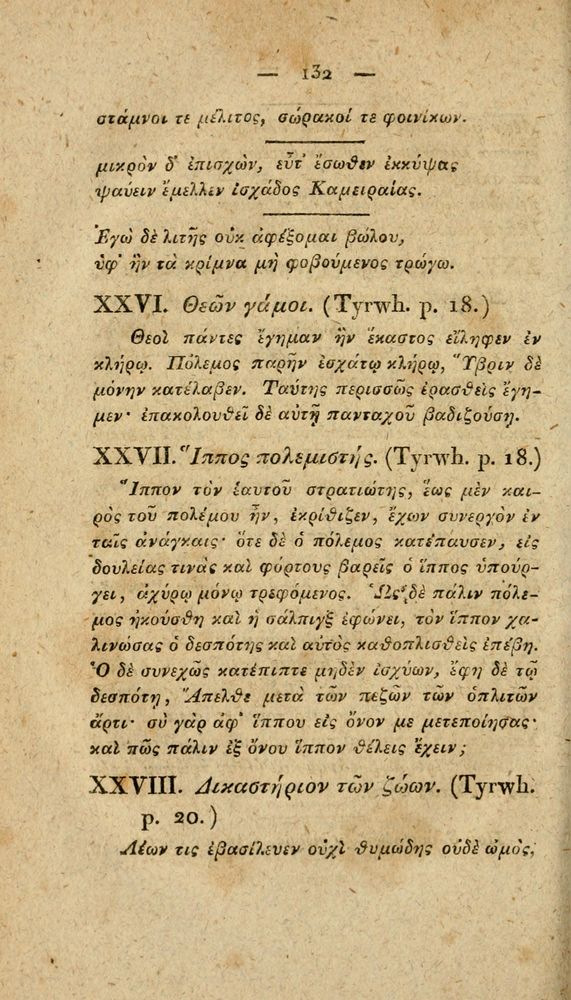 — 132 —
στάμνοι τε μέλιτος, σώρακοί τε φοινίκων.
μικρὸν δ' ἐπισχὼν, εὖτ' ἔσωθεν ἐκκύψας
ψαύειν ἔμελλεν ἰσχάδος Καμειραίας.
Ἐγὼ δὲ λιτῆς οὐκ ἀφέξομαι βώλου,
ὑφ' ἣν τὰ κρίμνα μὴ φοβούμενος τρώγω.
XXVI. Θεῶν γάμοι. (Tyrwh. p. 18.)
Θεοὶ πάντες ἔγημαν ἣν ἕκαστος εἴληφεν ἐν
κλήρῳ. Πόλεμος παρῆν ἐσχάτῳ κλήρῳ, Ὕβριν δὲ
μόνην κατέλαβεν. Ταύτης περισσῶς ἐρασθεὶς ἔγη-
μεν· ἐπακολουθεῖ δὲ αὐτῇ πανταχοῦ βαδιζούσῃ.
XXVII. Ἵππος πολεμιστής. (Tyrwh. p. 18.)
Ἵππον τὸν ἑαυτοῦ στρατιώτης, ἕως μὲν και-
ρὸς τοῦ πολέμου ἦν, ἐκρίθιζεν, ἔχων συνεργὸν ἐν
ταῖς ἀνάγκαις· ὅτε δὲ ὁ πόλεμος κατέπαυσεν, εἰς
δουλείας τινὰς καὶ φόρτους βαρεῖς ὁ ἵππος ὑπούρ-
γει, ἀχύρῳ μόνῳ τρεφόμενος. Ὡς δὲ πάλιν πόλε-
μος ἠκούσθη καὶ ἡ σάλπιγξ ἐφώνει, τὸν ἵππον χα-
λινώσας ὁ δεσπότης καὶ αὐτὸς καθοπλισθεὶς ἐπέβη.
Ὁ δὲ συνεχῶς κατέπιπτε μηδὲν ἰσχύων, ἔφη δὲ τῷ
δεσπότῃ, Ἄπελθε μετὰ τῶν πεζῶν τῶν ὁπλιτῶν
ἄρτι· σὺ γὰρ ἀφ' ἵππου εἰς ὄνον με μετεποίησας·
καὶ πῶς πάλιν ἐξ ὄνου ἵππον θέλεις ἔχειν;
XXVIII. Δικαστήριον τῶν ζώων. (Tyrwh.
p. 20.)
Λέων τις ἐβασίλευεν οὐχὶ θυμώδης οὐδὲ ὠμὸς,